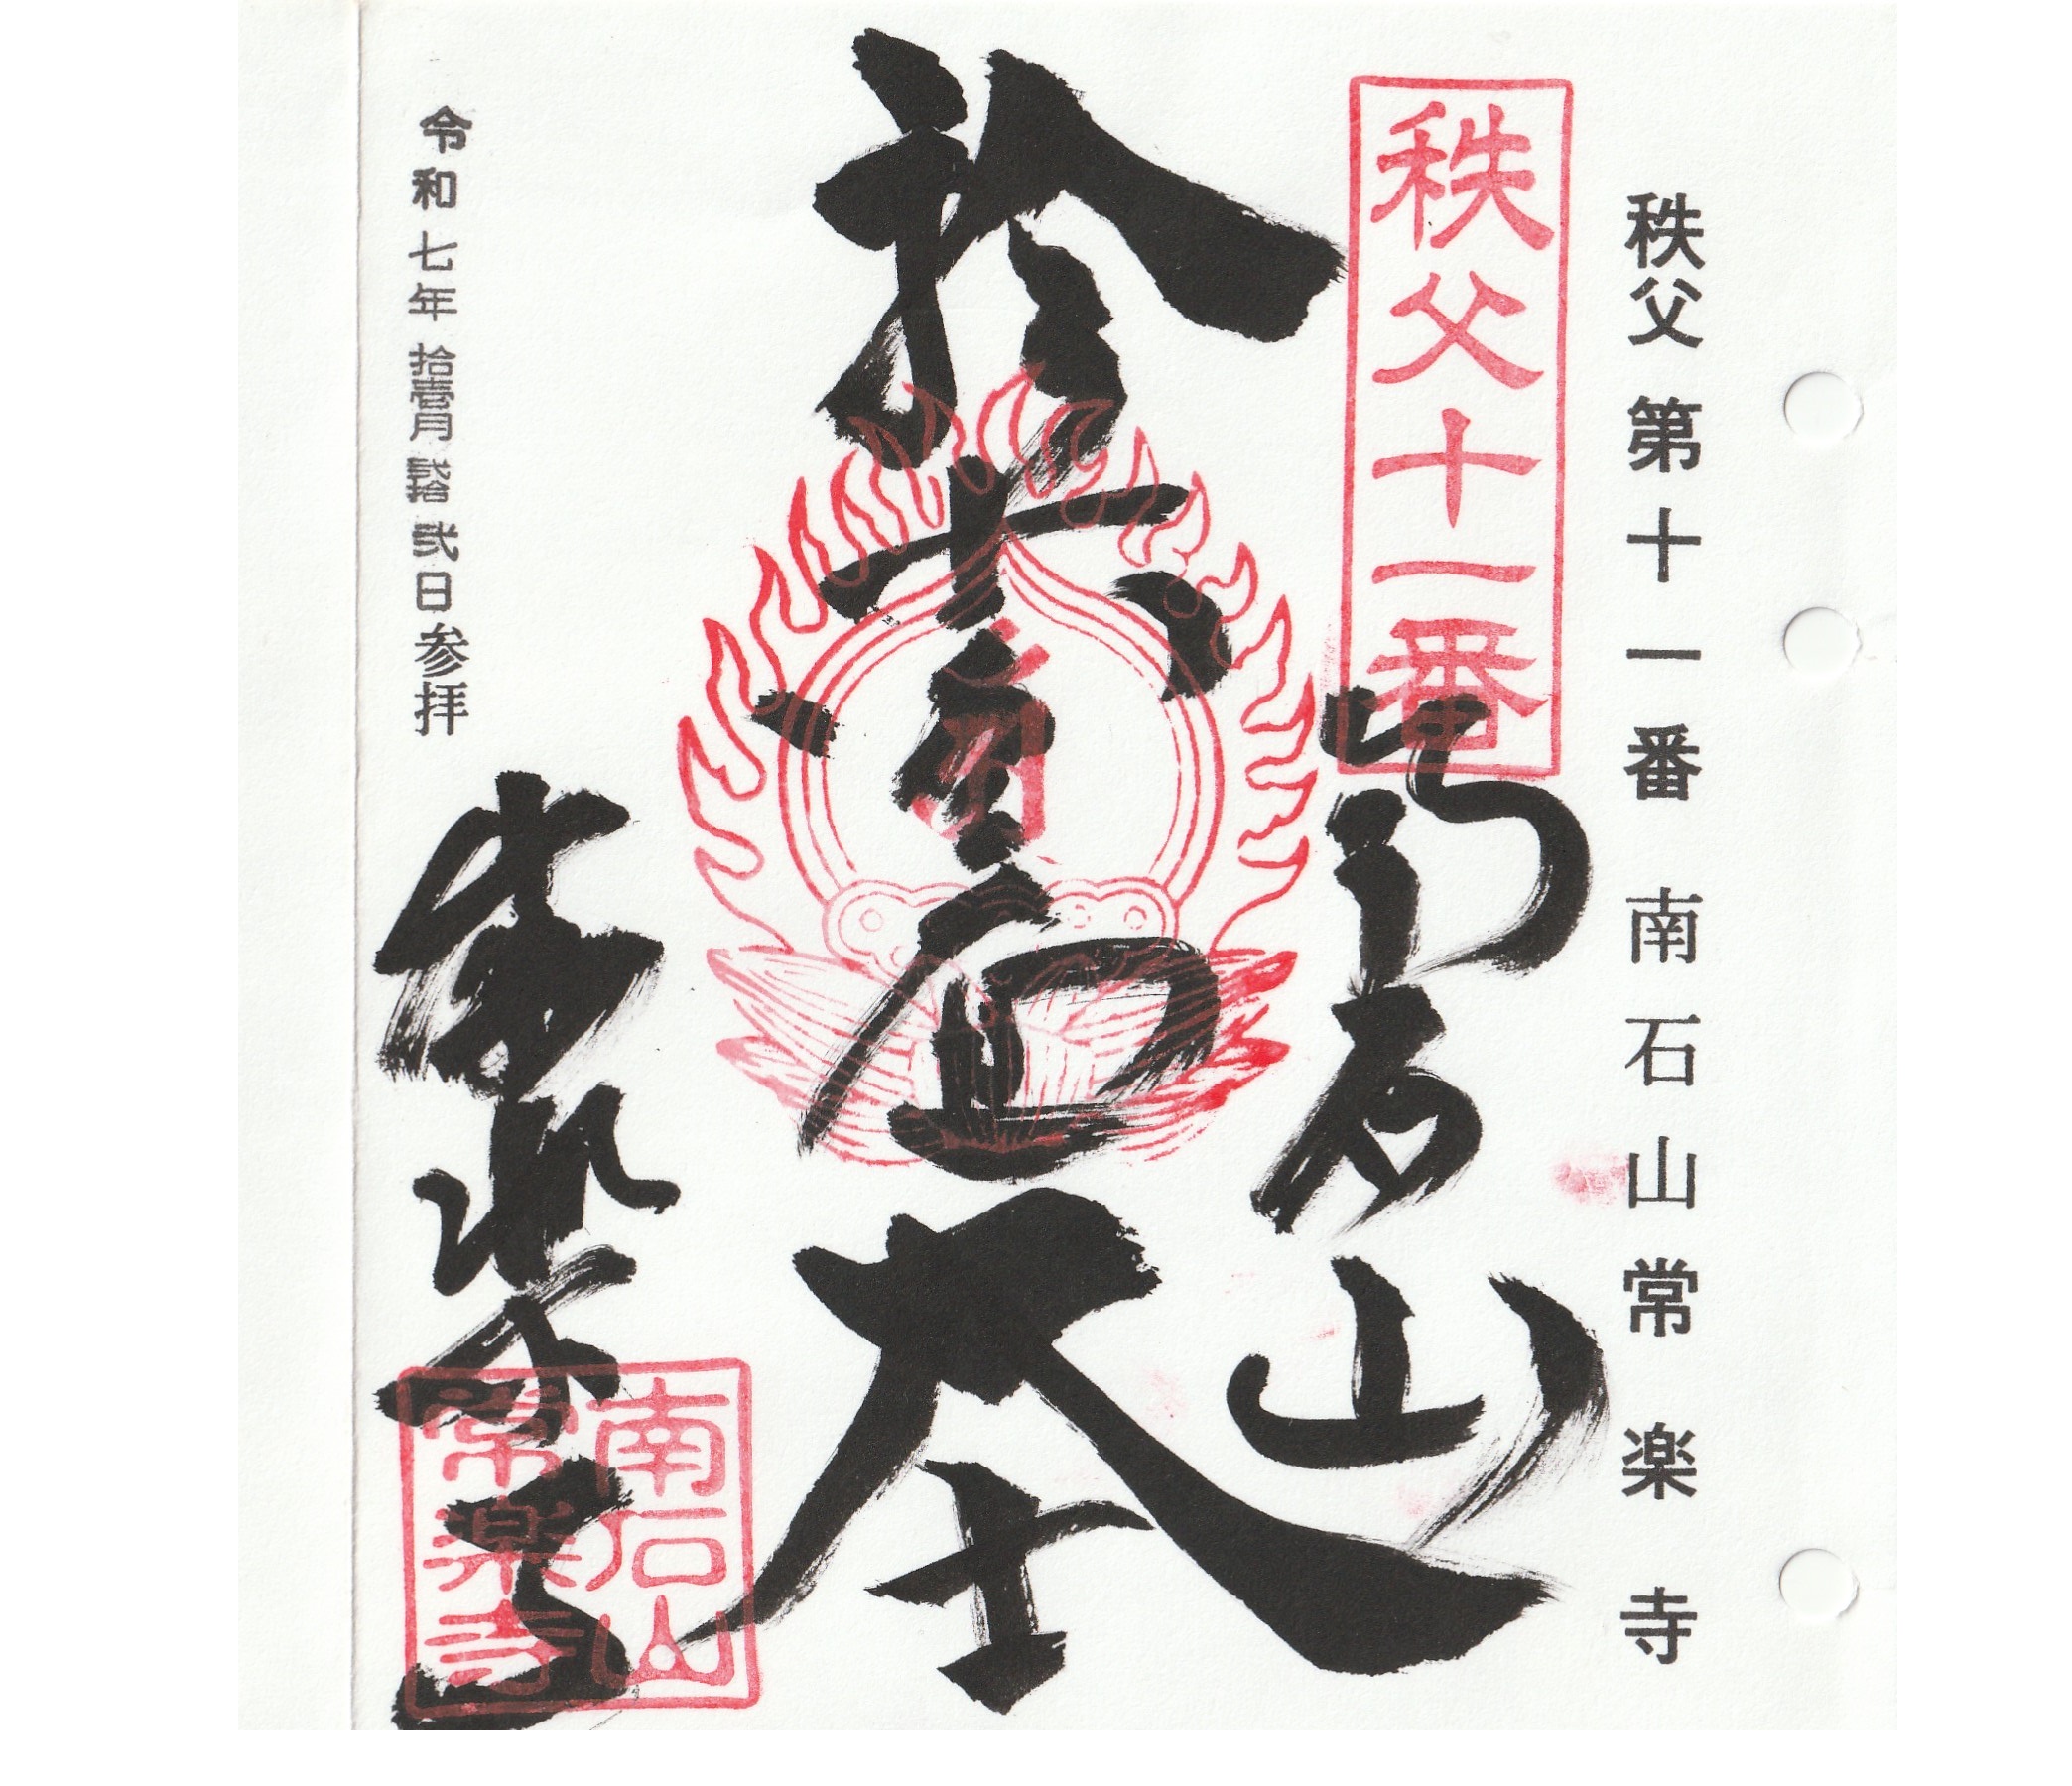 秩父 第十一番 南石山常楽寺
秩父十一番
南石山
拾壹面大士
常楽寺
南石山
常樂寺
令和七年拾壹月貳拾貳日参拝